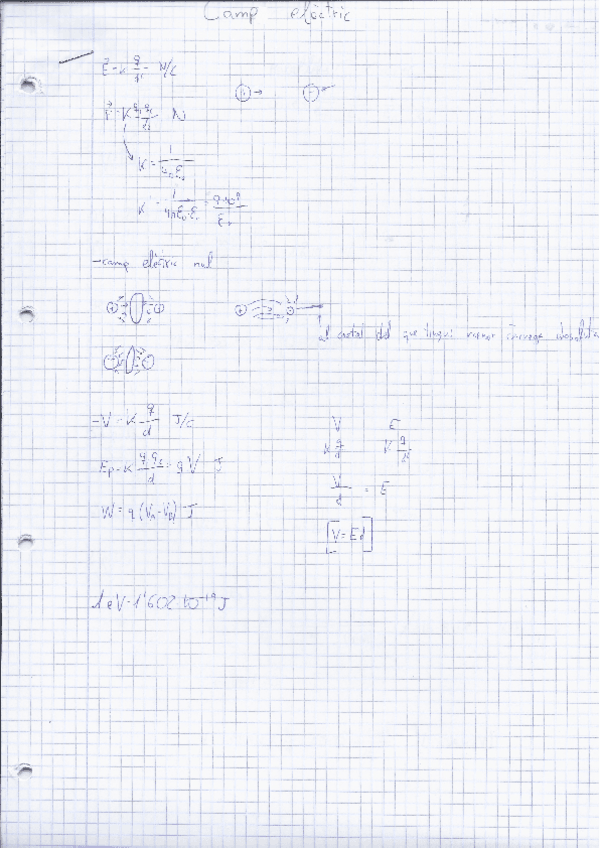 Camp elèctric
E = K q/d² N/C
F = K q₁q₂/d² N
K = 1/4πε
K = 1/4πε₀·εᵣ = 9·10⁹/εᵣ
- camp elèctric nul
al costat del que tingui menor càrrega absoluta
- V = K q/d J/C
Ep = K q q₂/d = q V J
W = q (Va - Vb) J
V E
K q/d K q/d²
V/d = E
V = Ed
1 eV = 1'602·10⁻¹⁹ J